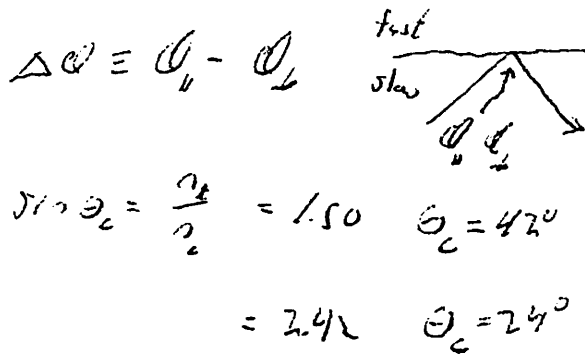 Δφ ≡ φ∥ - φ⊥
fast
slow
φ∥ φ⊥
sin θc = nt/ni = 1.50 θc = 42°
= 2.42 θc = 24°